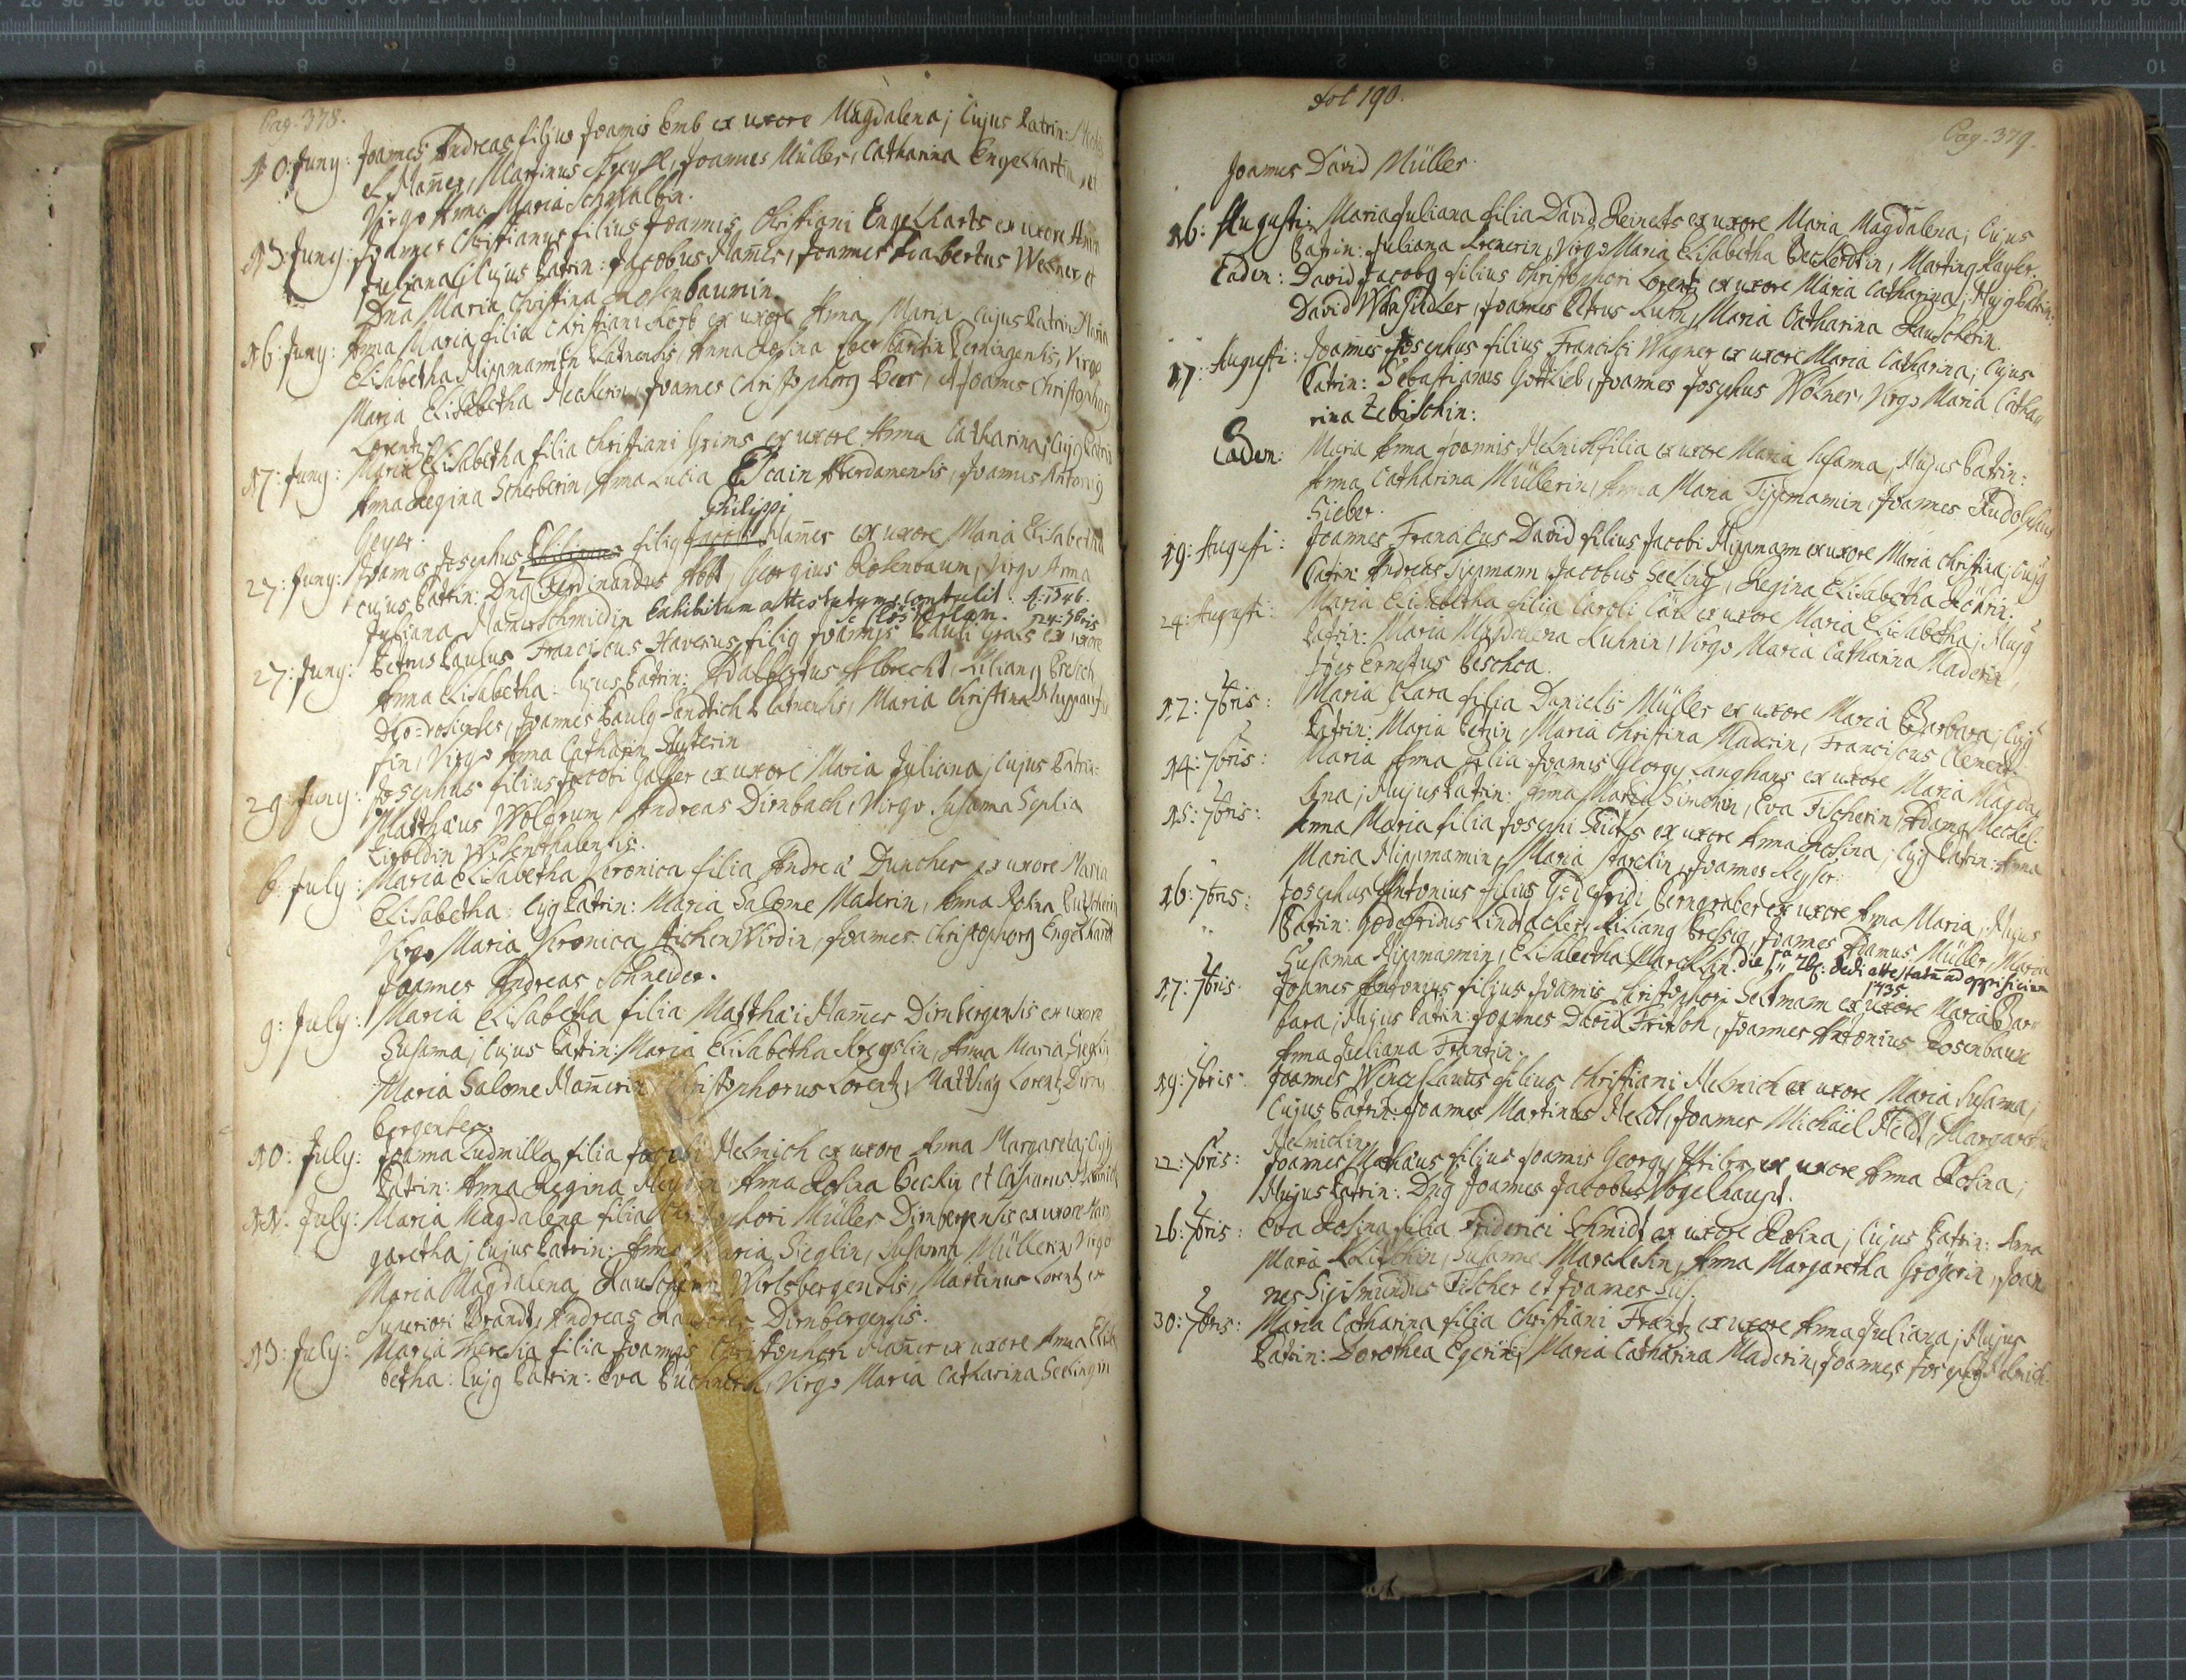 Pag. 378.
10: Juny: Joannes Andreas filius Joannis Emb ex uxore Magdalena; Cujus Patrin:
Hamer, Martinus Joannes Müller, Catharina Engelhartin, et
Virgo Anna Maria Schwalbin.
13: Juny: Joannes Christianus filius Joannis Christiani Engelharts ex uxore Anna
Juliana; Cujus Patrin: Jacobus Hamer, Joannes Adalbertus Wekner et
Dna Maria Christina Rosenbaumin.
16: Juny: Anna Maria filia Christiani Korb ex uxore Anna Maria, Cujus Patrin: Maria
Elisabetha Hippmannin Platnensis, Anna Rosina Permingensis, Virgo
Maria Elisabetha Heckerin, Joannes Christophorg Beer, et Joannes Christophorg
Lorentz.
17: Juny: Maria Elisabetha filia Christiani Grims ex uxore Anna Catharina; Cujg Patrin
Anna Regina Scherberin, Anna Lucia Joannes Antonig
Geyer.
Philippi
27: Juny: Joannes Josephus Philippus filig Jacobi Hamer ex uxore Maria Elisabetha
cujus Patrin: Dng Ferdinandus Abbt, Georgius Rosenbaum, Virgo Anna
Juliana Hamerschmidin Exhibitum attestatum contulit. A: 1746.
27: Juny: Petrus Paulus Franciscus Haverius filig Joannis Pauli Grals ex uxore
Anna Elisabetha: Cujus Patrin: Adalbertus Albrecht, Kiliang Bresch
Joannes Paulg Sandrich Platnensis, Maria Christina Huppauf
sin, Virgo Anna Catharin
29: Juny: Josephus filius Jacobi Galler ex uxore Maria Juliana; Cujus Patrin:
Matthæus Wolfrum, Andreas Dirnbach, Virgo Susanna Sophia
Lipoldin Wisenthalensis.
6: July: Maria Elisabetha Veronica filia Andreæ Duncher ex uxore Maria
Elisabetha: Cujg Patrin: Maria Salome Maderin, Anna Rosina
Virgo Maria Veronica Joannes Christophorg Engelhardt
Joannes Andreas Schneider.
9: July: Maria Elisabetha filia Matthæi Hamer Dirnbergensis ex uxore
Susanna; Cujus Patrin: Maria Elisabetha Anna Maria Sieglin
Maria Salome Hamerin Christophorus Lorentz, Matthæg Lorentz Dirn
bergenses.
10: July: Joanna Ludmilla filia Jacobi Helmich ex uxore Anna Margareta; Cujg
Patrin: Anna Regina Anna Rosina Beckin et Casparus
11: July: Maria Magdalena filia Christophori Müller Dirnbergensis ex uxore Mar
garetha; Cujus Patrin: Anna Maria Sieglin, Susanna Müllerin, Virgo
Maria Magdalena Rauscherin Wirlsbergensis, Martinus Lorentz ex
Superiori Brandt, Andreas Rauscher Dirnbergensis.
13: July: Maria Theresia filia Joannis Christophori Hamer ex uxore Anna Elisa
betha: Cujg Patrin: Eva Puchnerin, Virgo Maria Catharina Seelingin
Fol 190.
Pag. 379.
Joannes David Müller.
16: Augusti: Maria Juliana filia David Reinerts ex uxore Maria Magdalena; Cujus
Patrin: Juliana Kremerin, Virgo Maria Elisabetha Beckertin, Marting Kayser.
Eaden: David Jacobg filius Christophori Lorentz ex uxore Maria Catharina; Hujg Patrin:
David Joannes Petrus Kuhn, Maria Catharina Rauscherin.
17: Augusti: Joannes Josephus filius Francisci Wagner ex uxore Maria Catharina; Cujus
Patrin: Sebastianus Gottlieb, Joannes Josephus Wölner, Virgo Maria Catha
rina Zebischin:
Eadem: Maria Anna Joannis Helmich filia ex uxore Maria Susanna; Hujus Patrin:
Anna Catharina Müllerin, Anna Maria Tippmannin, Joannes Rudolphus
Sieber.
19: Augusti: Joannes Franciscus David filius Jacobi Hippmann ex uxore Maria Christina; Cujg
Patrin: Andreas Tippmann, Jacobus Seeling, Regina Elisabetha Röhrin.
24: Augusti: Maria Elisabetha filia Caroli ex uxore Maria Elisabetha; Hujg
Patrin: Maria Magdalena Kuhnin, Virgo Maria Catharina Maderin
Ernestus Peschca.
12: 7bris: Maria Clara filia Danielis Müller ex uxore Maria Barbara; Cujg
Patrin: Maria Petzin, Maria Christina Maderin, Franciscus Clement.
14: 7bris: Maria Anna filia Joannis Georgy Langhans ex uxore Maria Magda
lena; Hujus Patrin: Anna Maria Simonin, Eva Fischerin, Adamg Meckel.
15: 7bris: Anna Maria filia Josephi ex uxore Anna Rosina; Cujg Patrin: Anna
Maria Hippmannin, Maria Joannes Keyser.
16: 7bris: Josephus Antonius filius Godefridi Berngraber ex uxore Anna Maria; Hujus
Patrin: Godefridus Lindacker, Kiliang Bressig, Joannes Adamus Müller, Maria
Susanna Hippmannin, Elisabetha Marcklin. die dedi attestatum ad opificium
1735.
17: 7bris: Joannes Antonius filius Joannis Christophori Seltmann ex uxore Maria Bar
bara; Hujus Patrin: Joannes David Fritsch, Joannes Antonius Rosenbaum
Anna Juliana Frantzin.
19: 7bris: Joannes Wenceslaus filius Christiani Helmich ex uxore Maria Susanna;
Cujus Patrin: Joannes Martinus Heldt, Joannes Michael Heldt, Margaretha
Helmichin.
22: 7bris: Joannes Mathæus filius Joannis Georgy ex uxore Anna Rosina;
Hujus Patrin: Dng Joannes Jacobus Vogelhaupt.
26: 7bris: Eva Rosina filia Friderici Schmidt ex uxore Rosina; Cujus Patrin: Anna
Maria Susanna Anna Margaretha Grögerin, Joan
nes Sigismundus Fischer et Joannes
30: 7bris: Maria Catharina filia Christiani Frantz ex uxore Anna Juliana; Hujus
Patrin: Dorothea Egerin, Maria Catharina Maderin, Joannes Josephg Helmich.